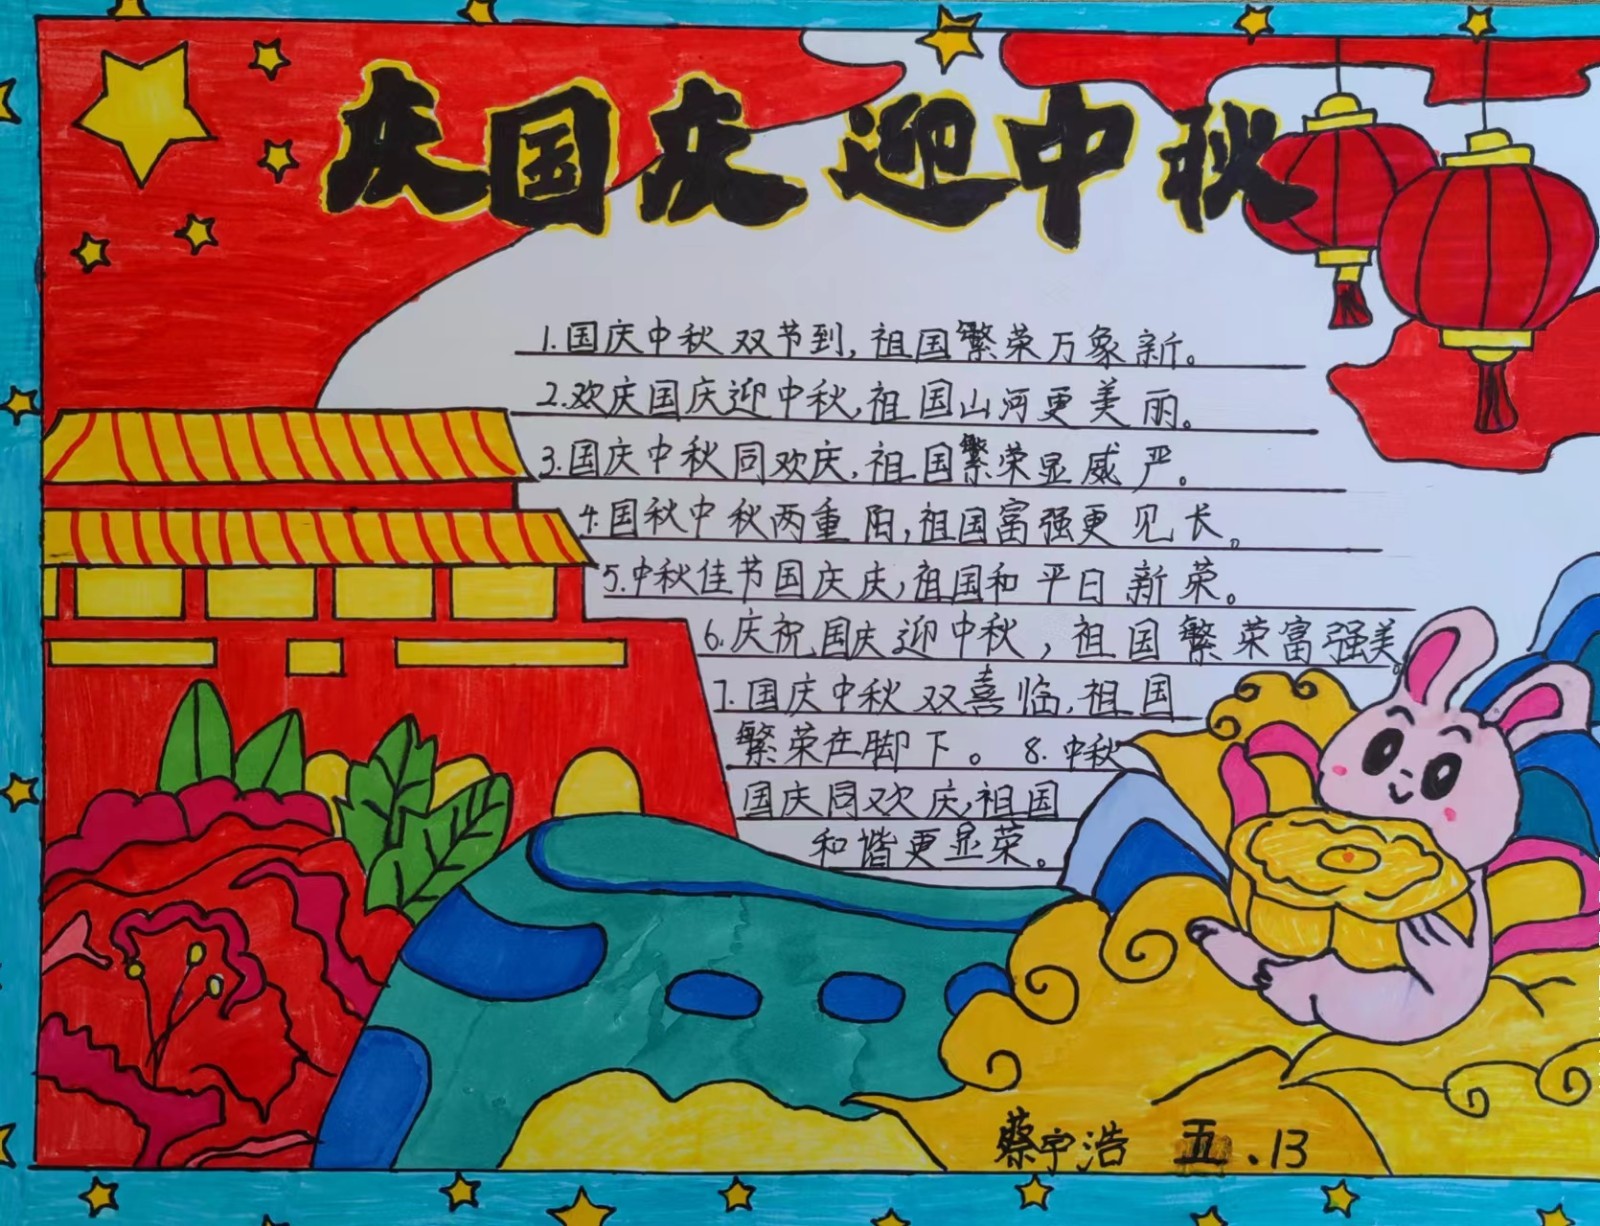 庆国庆 迎中秋
1.国庆中秋双节到,祖国繁荣万象新。
2.欢庆国庆迎中秋,祖国山河更美丽。
3.国庆中秋同欢庆,祖国繁荣显威严。
4.国秋中秋两重阳,祖国富强更见长。
5.中秋佳节国庆庆,祖国和平日新荣。
6.庆祝国庆迎中秋,祖国繁荣富强美。
7.国庆中秋双喜临,祖国
繁荣在脚下。8.中秋
国庆同欢庆,祖国
和谐更显荣。
蔡宇浩 五.13